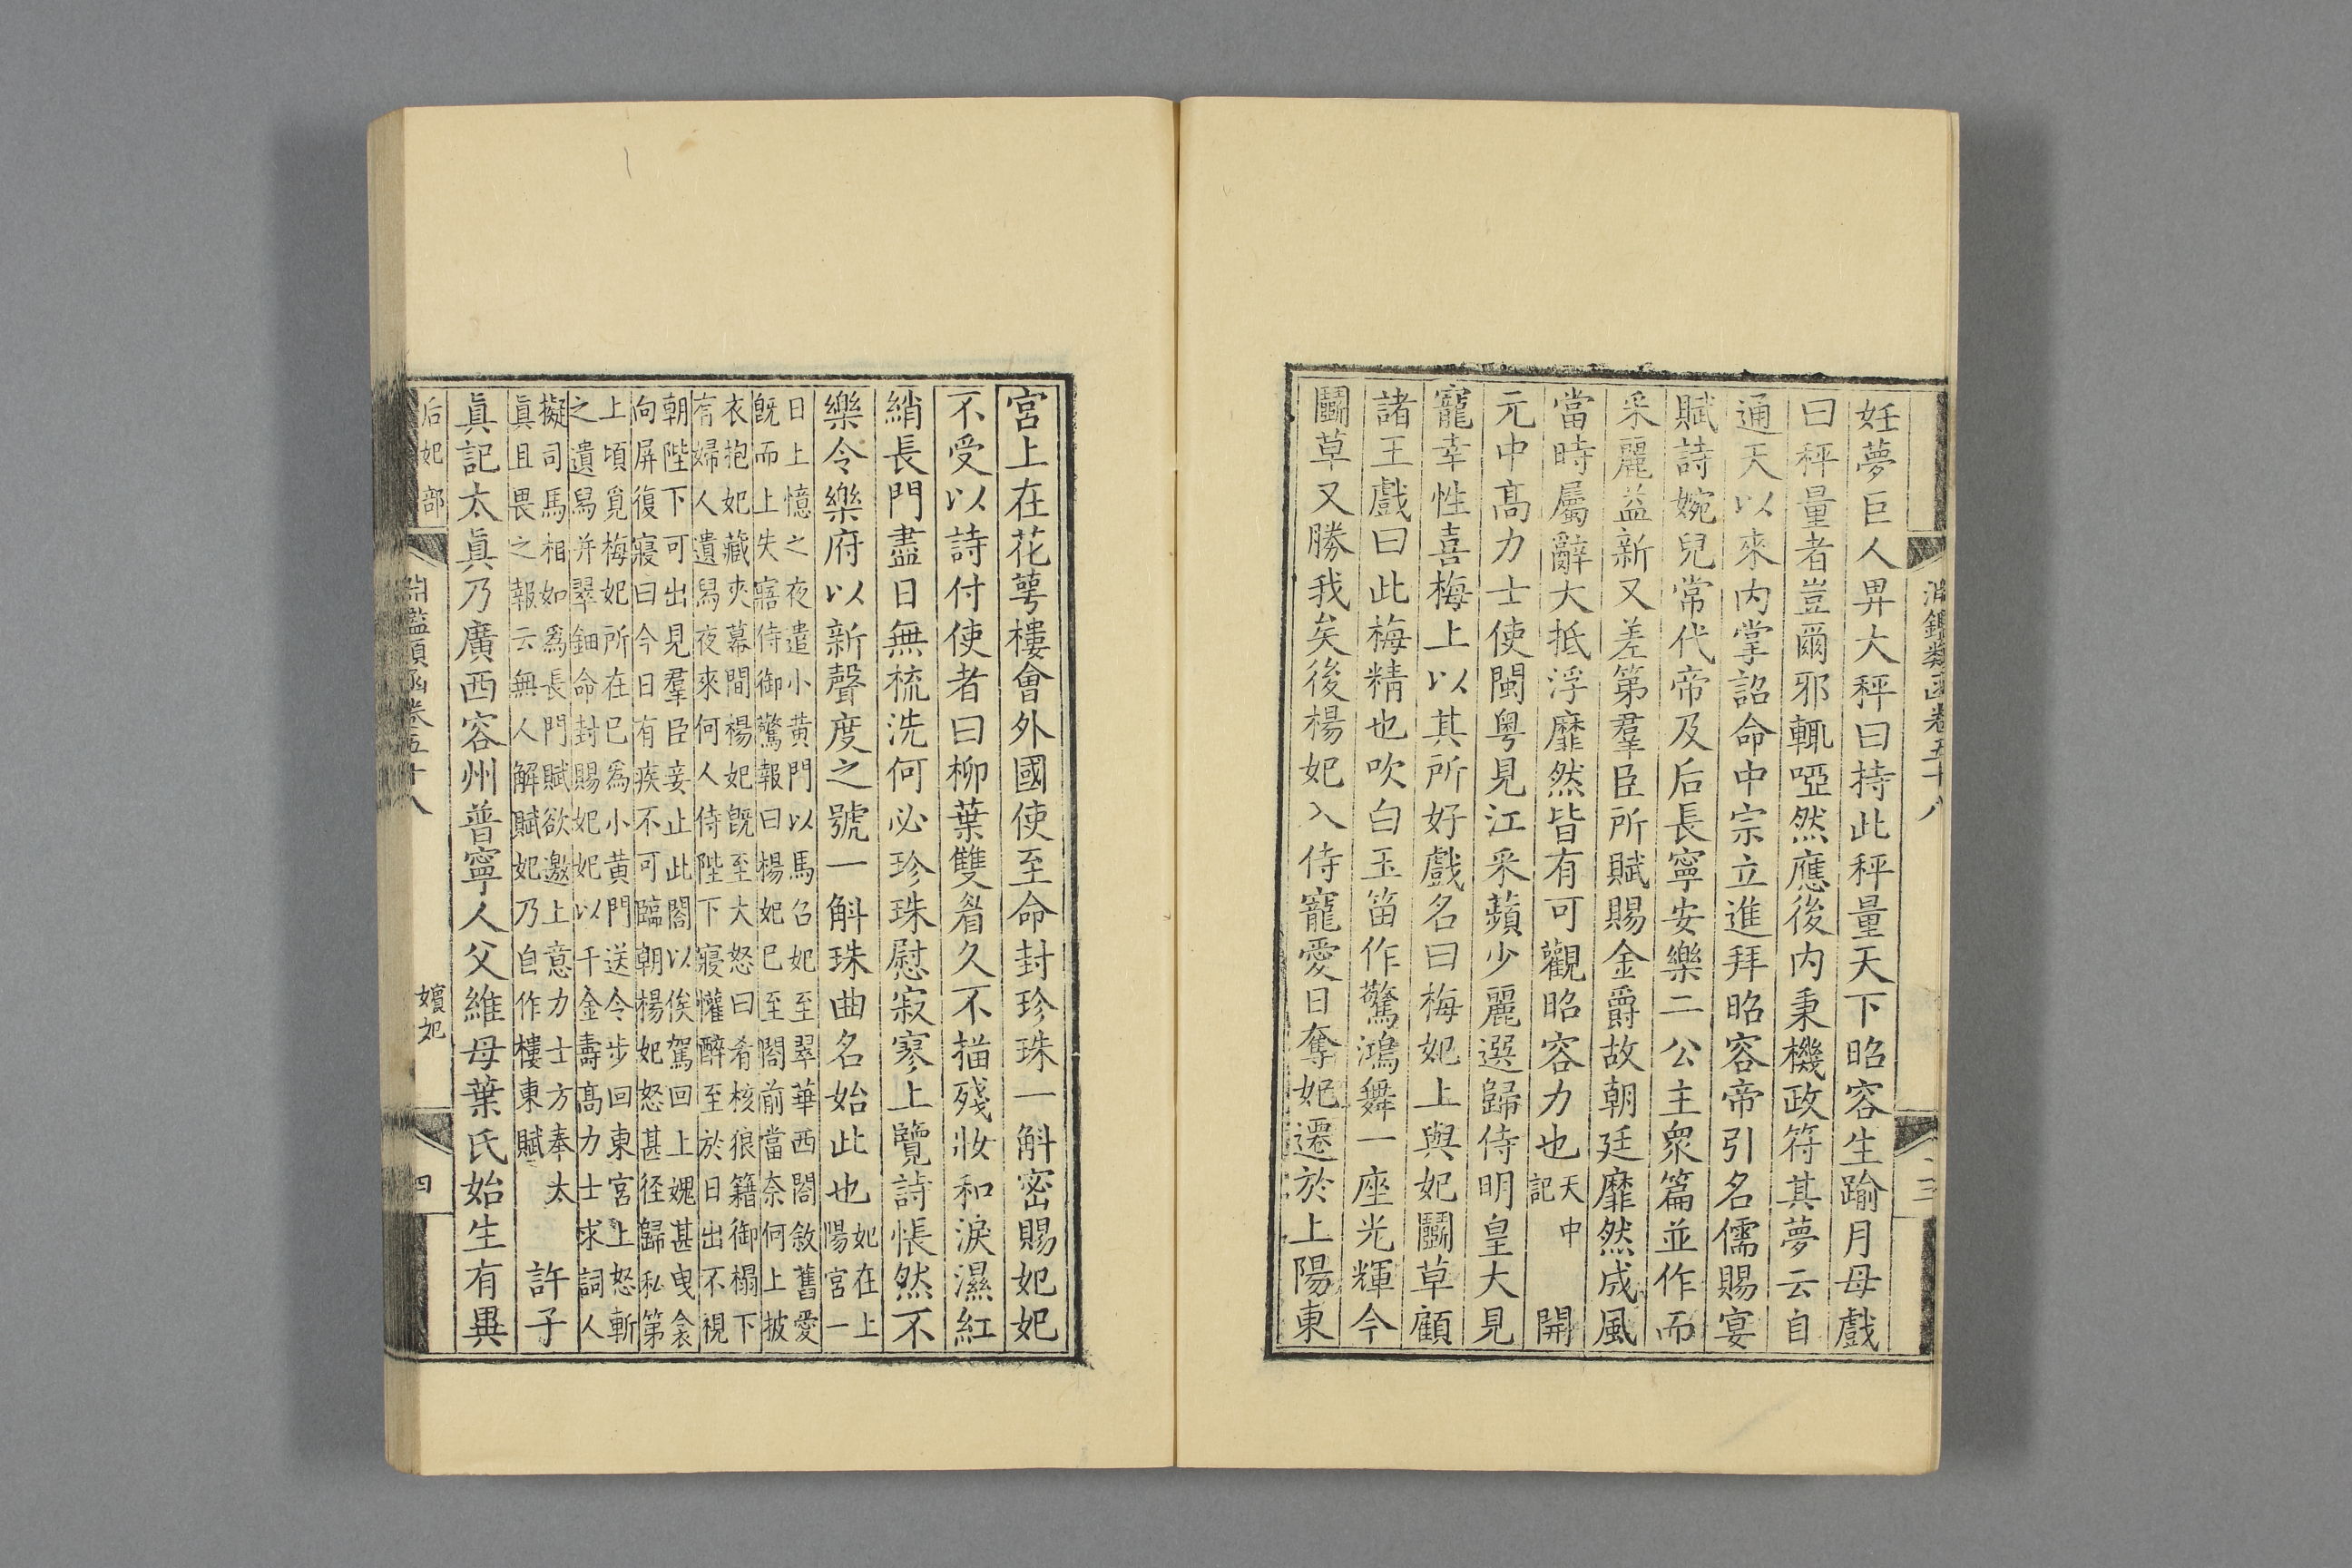 淵鑑類函卷五十八
三
妊夢巨人畀大秤曰持此秤量天下昭容生踰月母戲
曰秤量者豈爾邪輒啞然應後内秉機政符其夢云自
通天以來内掌詔命中宗立進拜昭容帝引名儒賜宴
賦詩婉兒常代帝及后長寧安樂二公主衆篇並作而
采麗益新又差第羣臣所賦賜金爵故朝廷靡然成風
當時屬辭大抵浮靡然皆有可觀昭容力也天中記　開
元中高力士使閩粵見江采蘋少麗選歸侍明皇大見
寵幸性喜梅上以其所好戲名曰梅妃上與妃鬭草顧
諸王戲曰此梅精也吹白玉笛作驚鴻舞一座光輝今
鬭草又勝我矣後楊妃入侍寵愛日奪妃遷於上陽東
宮上在花萼樓會外國使至命封珍珠一斛密賜妃妃
不受以詩付使者曰柳葉雙眉久不描殘妝和淚濕紅
綃長門盡日無梳洗何必珍珠慰寂寥上覽詩悵然不
樂令樂府以新聲度之號一斛珠曲名始此也妃在上
陽宮一
日上憶之夜遣小黃門以馬召妃至翠華西閣敘舊愛
旣而上失寤侍御驚報曰楊妃已至閣前當奈何上披
衣抱妃藏夾幕間楊妃旣至大怒曰肴核狼籍御榻下
有婦人遺舄夜來何人侍陛下寢懽醉至於日出不視
朝陛下可出見羣臣妾止此閣以俟駕回上媿甚曳衾
向屏復寢曰今日有疾不可臨朝楊妃怒甚徑歸私第
上頃覓梅妃所在已爲小黃門送令步回東宮上怒斬
之遺舄并翠鈿命封賜妃妃以千金壽高力士求詞人
擬司馬相如爲長門賦欲邀上意力士方奉太
眞且畏之報云無人解賦妃乃自作樓東賦　許子
眞記太眞乃廣西容州普寧人父維母葉氏始生有異
后妃部
淵鑑類函卷五十八
嬪妃
四